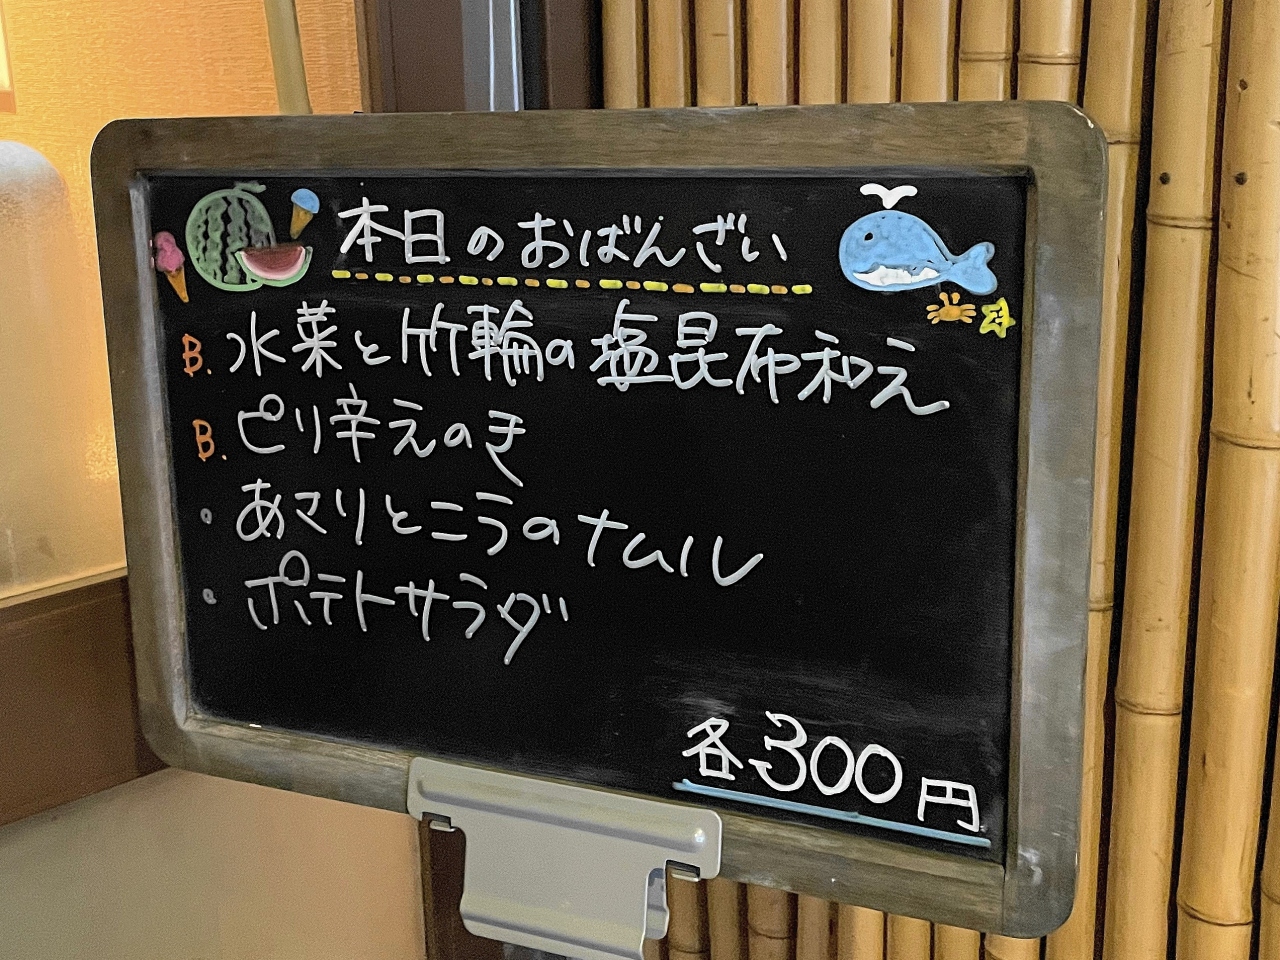 本日のおばんざい
B. 水菜と竹輪の塩昆布和え
B. ピリ辛えのき
・あマリとこうのナムル
・ポテトサラダ
各300円